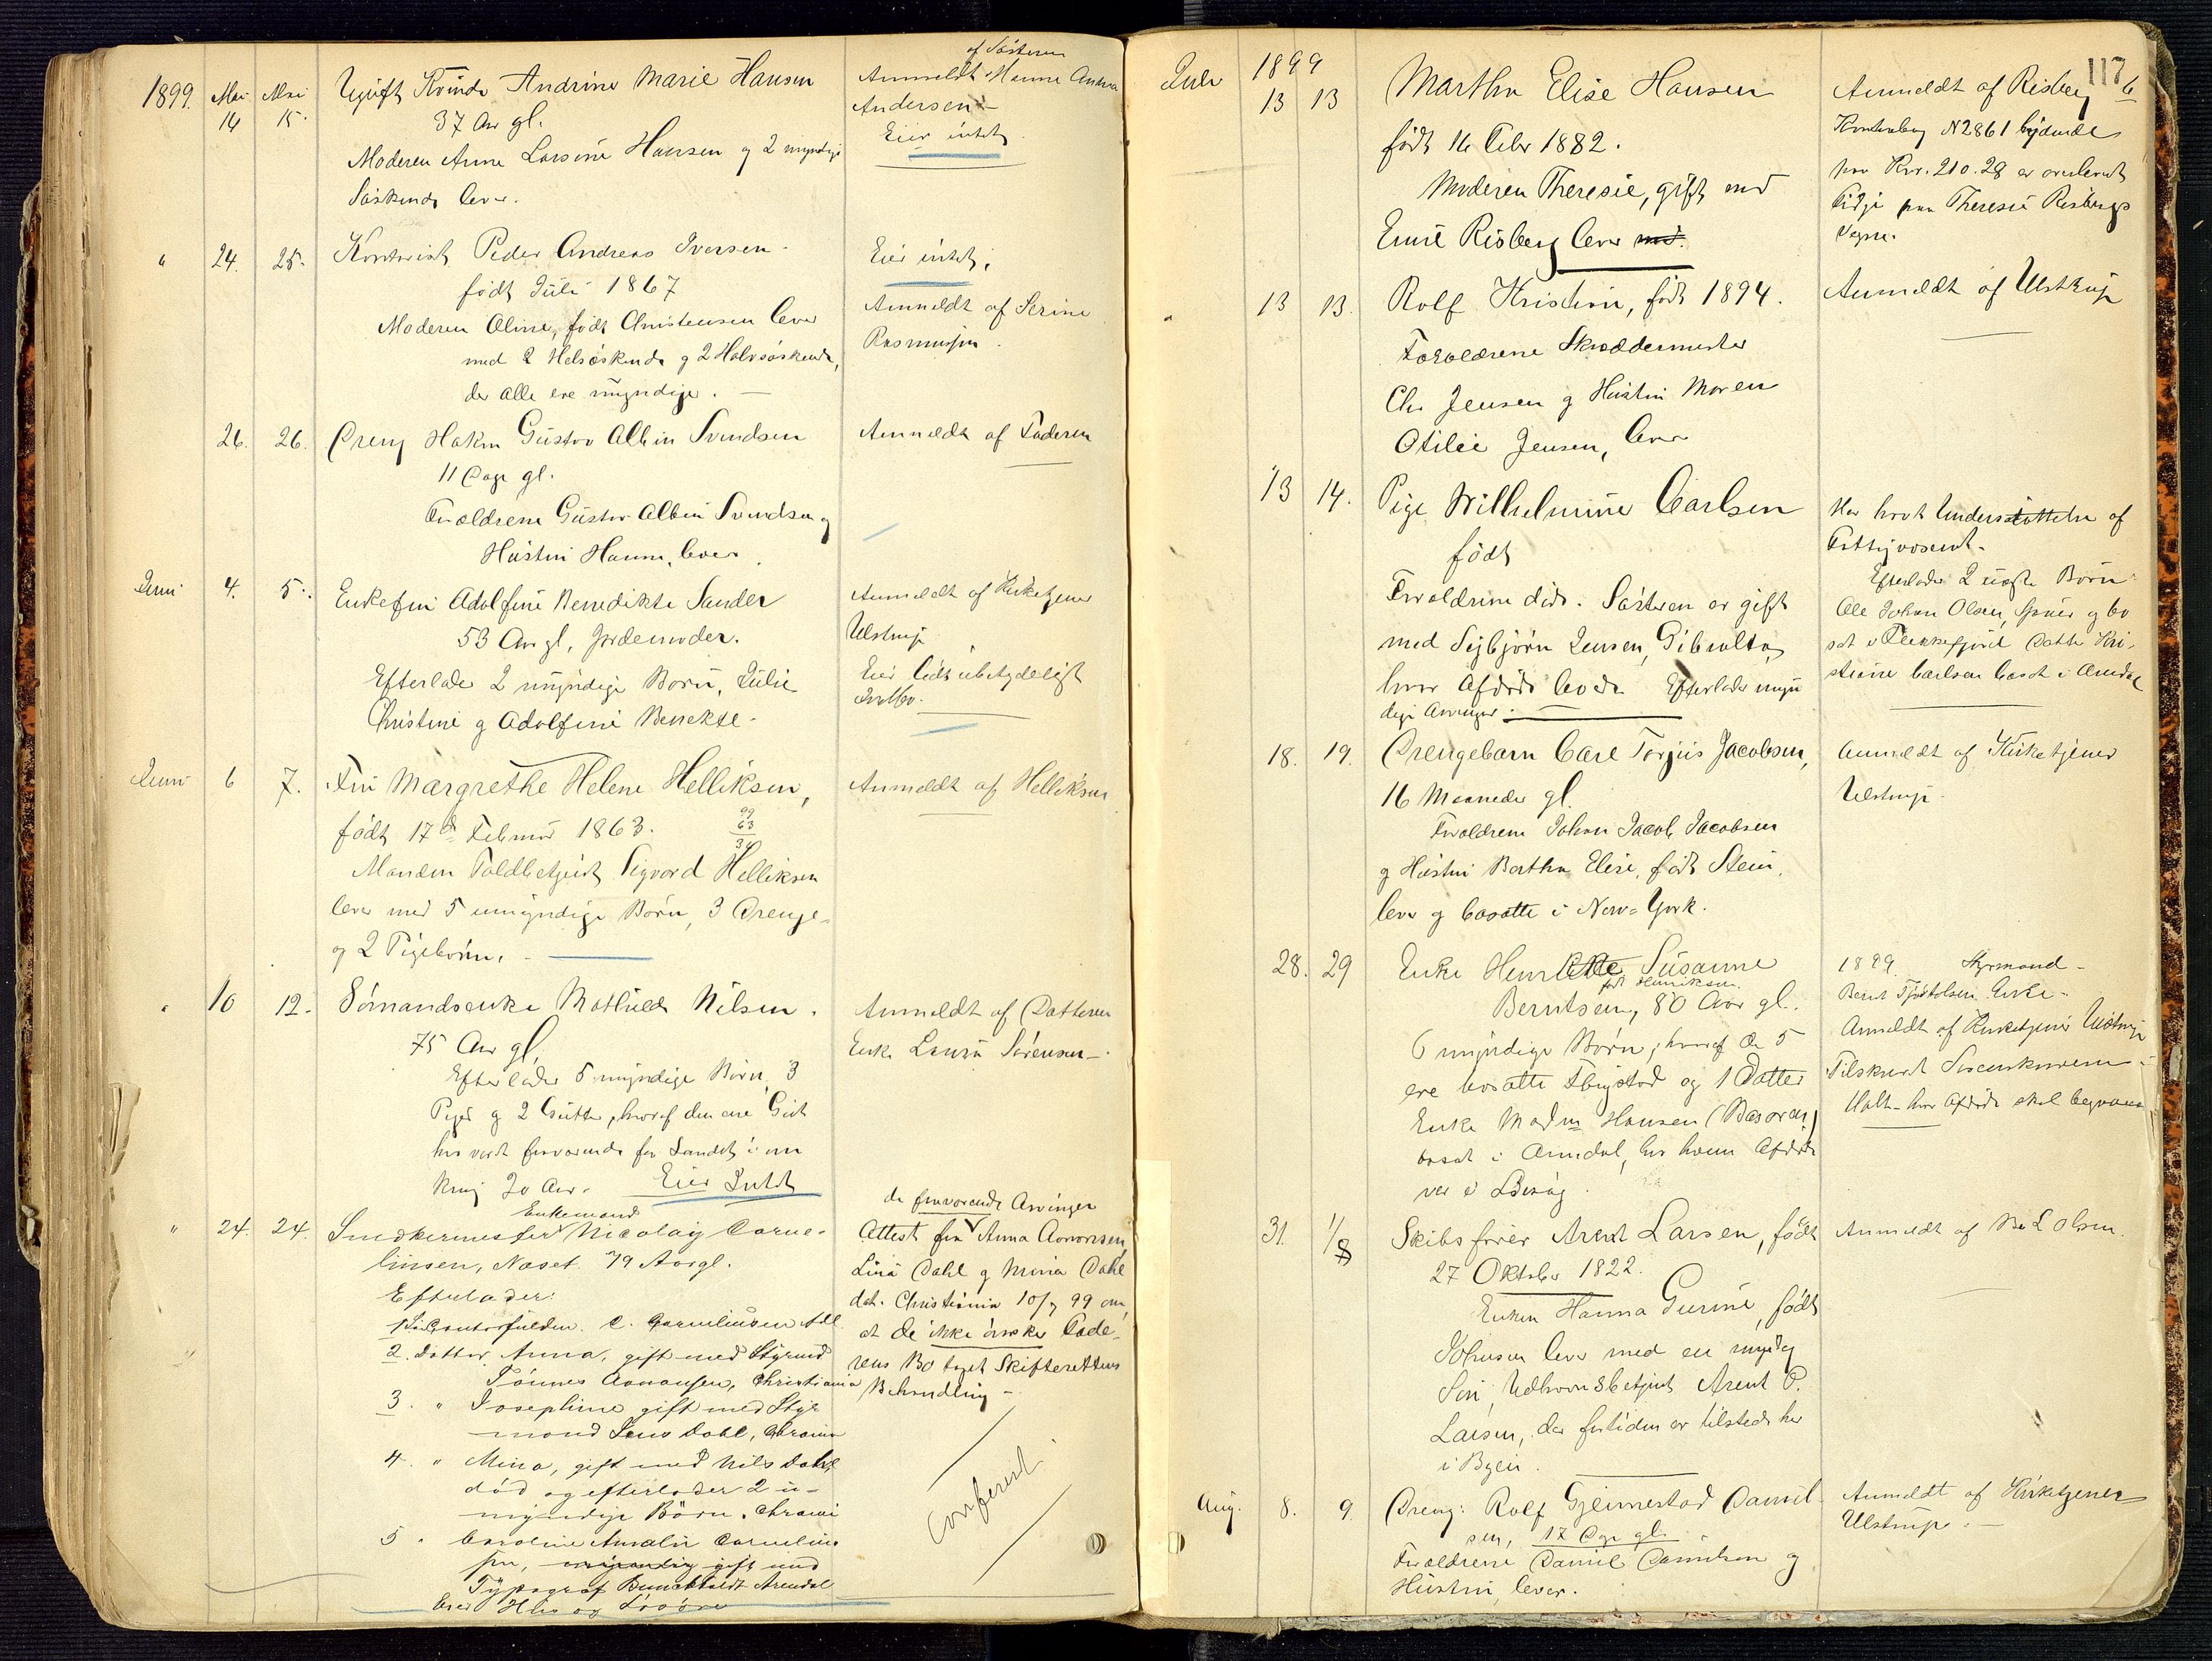 1899. Mai 14 Mai 15. Ugift Kvinde Andrine Marie Hansen
37 Aar gl.
Moderen Anne Larsine Hansen og 2 myndige
Søskende lever.
af Søsteren
Anmeldt Hanne Andrea
Andersen
Eier intet
" 24. 25. Kontorist Peder Andreas Iversen
født Juli 1867
Moderen Oline, født Christensen lever
med 2 Helsøskende og 2 Halvsøskende,
der alle ere myndige.
Eier intet.
Anmeldt af Serine
Rasmussen.
26. 26. Dreng Hakon Gustav Albin Svendsen
11 Dage gl.
Forældrene Gustav Albin Svendsen og
Hustru Hanna, lever.
Anmeldt af Faderen
Juni 4. 5. Enkefru Adolfine Benedikte Sander
53 Aar gl, Jordemoder.
Efterlader 2 myndige Børn, Julie
Christine og Adolfine Benedikte.
Anmeldt af Kirketjener
Ulstrup
Eier lidt ubetydeligt
Indbo.
Juni 6 7. Fru Margrethe Helene Helliksen,
født 17de Februar 1863.
99
63
36
Manden Toldbetjent Sigvard Helliksen
lever med 5 umyndige Børn, 3 Drenge
og 2 Pigebørn.
Anmeldt af Helliksen
" 10 12. Sømandsenke Mathilde Nilsen.
75 Aar gl,
Efterlader 5 myndige Børn, 3
Piger og 2 Gutter, hvoraf den ene Gut
har været fraværende fra Landet i om
kring 20 Aar. Eier Intet
Anmeldt af Datteren
Enke Laura Sørensen
" 24. 24. Enkemand
Snedkermester Nicolay Corne-
liussen, Næset. 79 Aar gl.
Efterlader:
1 C. Corneliussen
2. Datter Anna, gift med Styrmd
Tønnes Aanonsen, Christiania
3. " Josephine gift med Styr
mand Jens Dahl, Chrania
4. " Mina, gift med Nils Dahl
død og efterlader 2 u-
myndige Børn. Chrania
5 " Caroline Amalie Cornelius
sen, gift med
Typograf Arendal
Eier Hus og
de fraværende Arvinger
Attest fra Anna Aanonsen,
Lina Dahl og Mina Dahl
dat. Christiania 10/7 99 om,
at de ikke ønsker Fade-
rens Bo taget Skifterettens
Behandling
Confereret
117 b
Juli 1899
13 13 Martha Elise Hansen
født 16 Febr 1882.
Moderen Theresie, gift med
Emil Risberg lever med.
Anmeldt af Risberg
Kontrabog N 2861 lydende
paa Kr. 210.28 er overleveret
Tidji paa Theresie Risbergs
Vegne.
" 13 13. Rolf Kristian, født 1894.
Forældrene Skræddermester
Chr Jensen og Hustru Maren
Otilie Jensen, lever
Anmeldt af Ulstrup
13 14. Pige Wilhelmine Carlsen
født
Forældrene døde. Søsteren er gift
med Sigbjørn Jensen, Gibralta,
hvor Afdøde levde. Efterlader myn
dige Arvinger.
Har havt Understøttelse af
Fattigvæsenet.
Efterlader 2 uægte Børn
Ole Johan Olsen, og bo
sat i Flekkefjord Datter Kri-
stiane Carlsen bosat i Arendal
18. 19. Drengebarn Carl Torjus Jacobsen,
16 Maaneder gl.
Forældrene Johan Jacob Jacobsen
og Hustru Bertha Elise, født Stein,
lever og bosatte i New-York.
Anmeldt af Kirketjener
Ulstrup.
28. 29 Enke Henriette Susanne
født Henriksen
Berntsen, 80 Aar gl.
6 myndige Børn, hvoraf de 5
ere bosatte i Thrystad og 1 Datter
Enke Madm Hansen
bosat i Arendal, hos hvem Afdøde
var i Besøg.
1899. Styrmand
Bernt Tjøstolsen Enke.
Anmeldt af Kirketjener Ulstrup
Tilskrevet Sorenskriveren i
Holt hvor Afdøde skal begraves
31. 1/8 Skibsfører Arent Larsen, født
27 Oktober 1822.
Enken Hanna Gurine, født
Johnsen lever med en myndig
Søn, Udhavnsbetjent Arent P.
Larsen, der fortiden er tilstede her
i Byen.
Anmeldt af L Olsen.
Aug. 8. 9. Dreng: Rolf Gjeimestad Daniel-
sen, 17 Dage gl.
Forældrene Daniel Danielsen og
Hustru, lever.
Anmeldt af Kirketjener
Ulstrup.